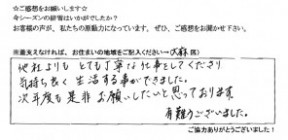 ☆ご感想をお願いします☆
今シーズンの除雪はいかがでしたか?
お客様の声が、私たちの原動力になっています。ぜひ、ご感想をお聞かせ下さい。
※差支えなければ、お住まいの地域をご記入ください→( 区)
他社よりも とても丁寧な仕事をしてくださり
気持ち良く生活する事ができました。
次年度も是非お願いしたいと思っております。
有難うございました。
ご協力ありがとうございました!